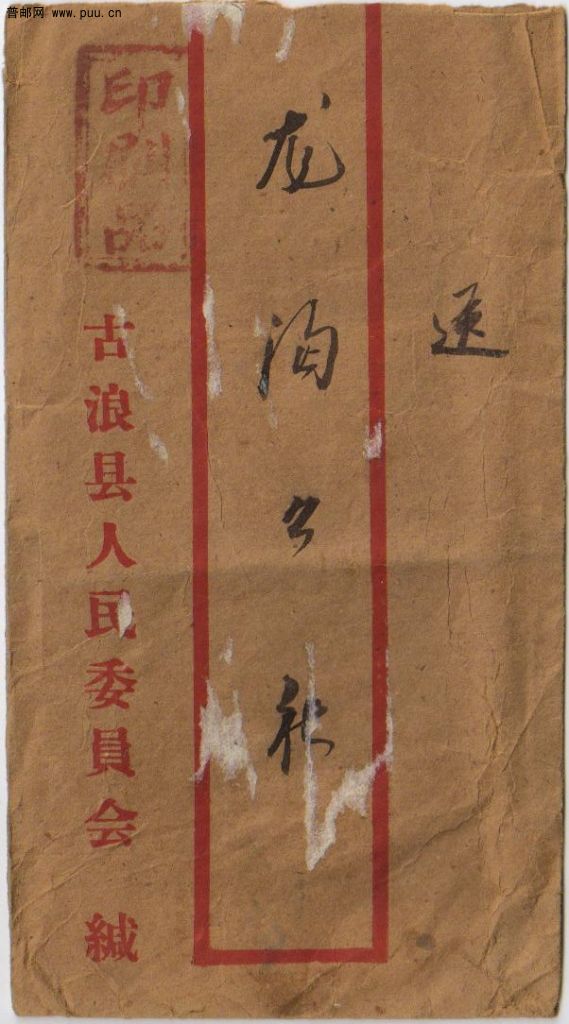 普邮网 www.puu.cn
送
龙沟公社
印刷品
古浪县人民委員会 緘